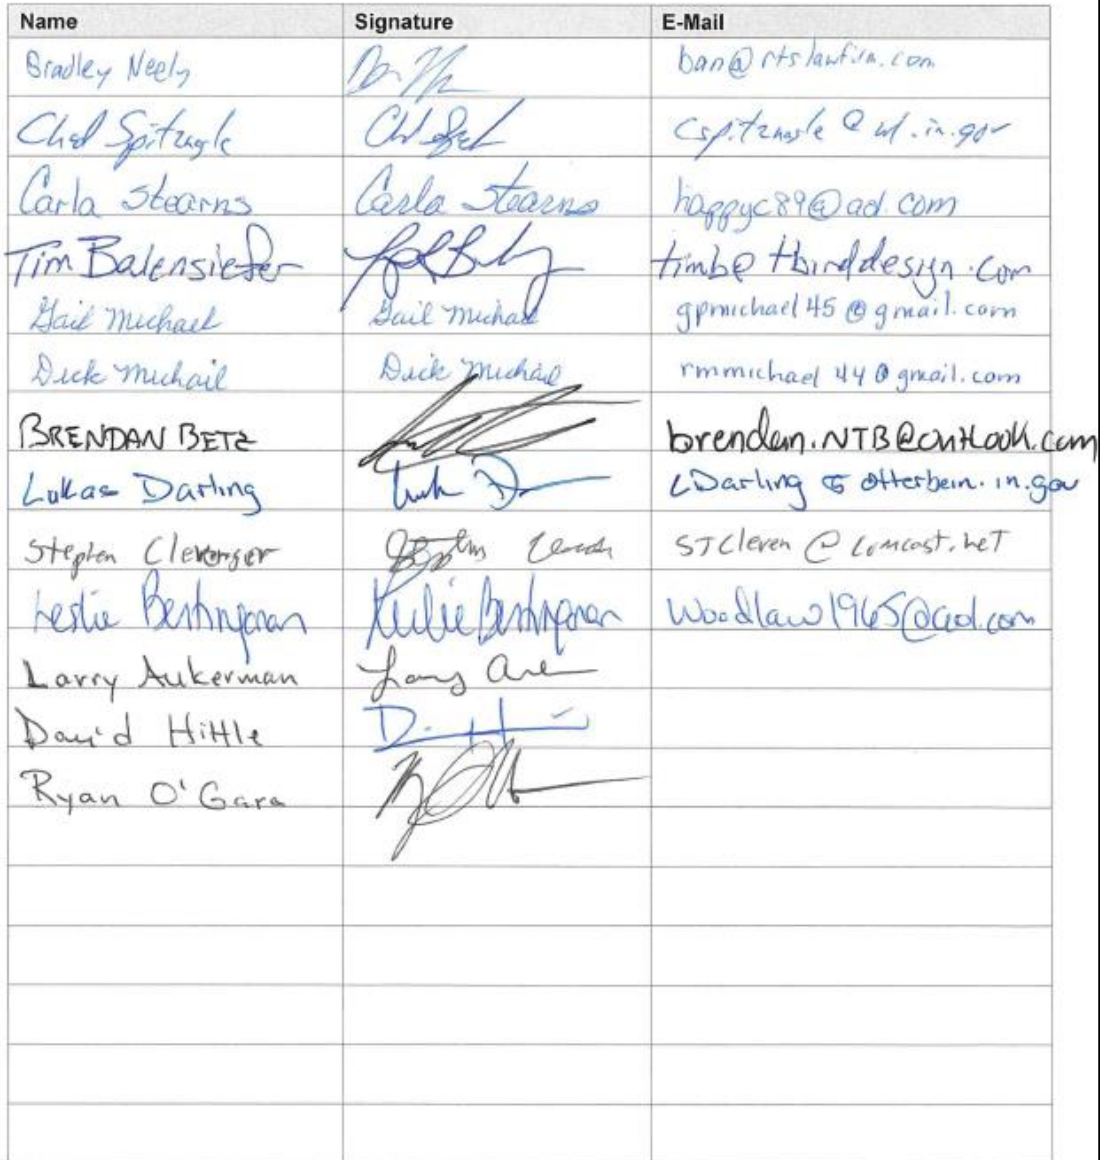 Name Signature E-Mail
Bradley Neely ban@rtslawfirm.com
Chad Spitznagle cspitznagle@wl.in.gov
Carla Stearns Carla Stearns happyc89@aol.com
Tim Balensiefer timb@tbirddesign.com
Gail Michael Gail Michael gpmichael45@gmail.com
Dick Michail Dick Michael rmmichael44@gmail.com
BRENDAN BETZ brendan.NTB@outlook.com
Lukas Darling LDarling@otterbein.in.gov
Stephen Clevenger STCleven@comcast.net
Leslie Leslie Woodlaw1965@aol.com
Larry Aukerman Larry
David Hittle
Ryan O'Gara